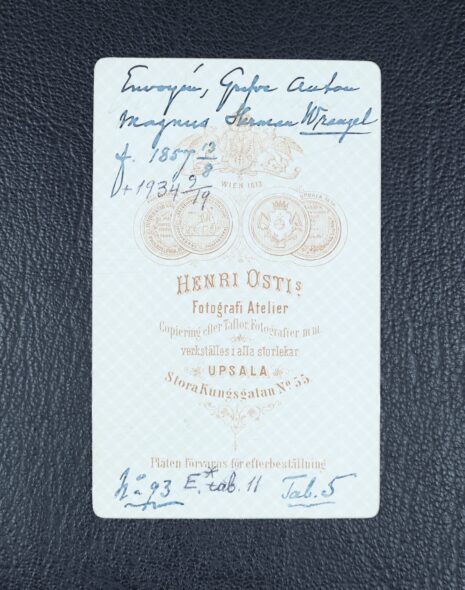 Envoyén, Grefve Anton
Magnus Herman Wrangel
f. 1857 13/8
+ 1934 9/19
WIEN 1873
UPSALA
HENRI OSTIs
Fotografi Atelier
Copiering efter Taflor, Fotografier m.m.
verkställes i alla storlekar
UPSALA
Stora Kungsgatan No 55.
Plåten förvaras för efterbeställning
No 93 E.* tab. 11 Tab. 5